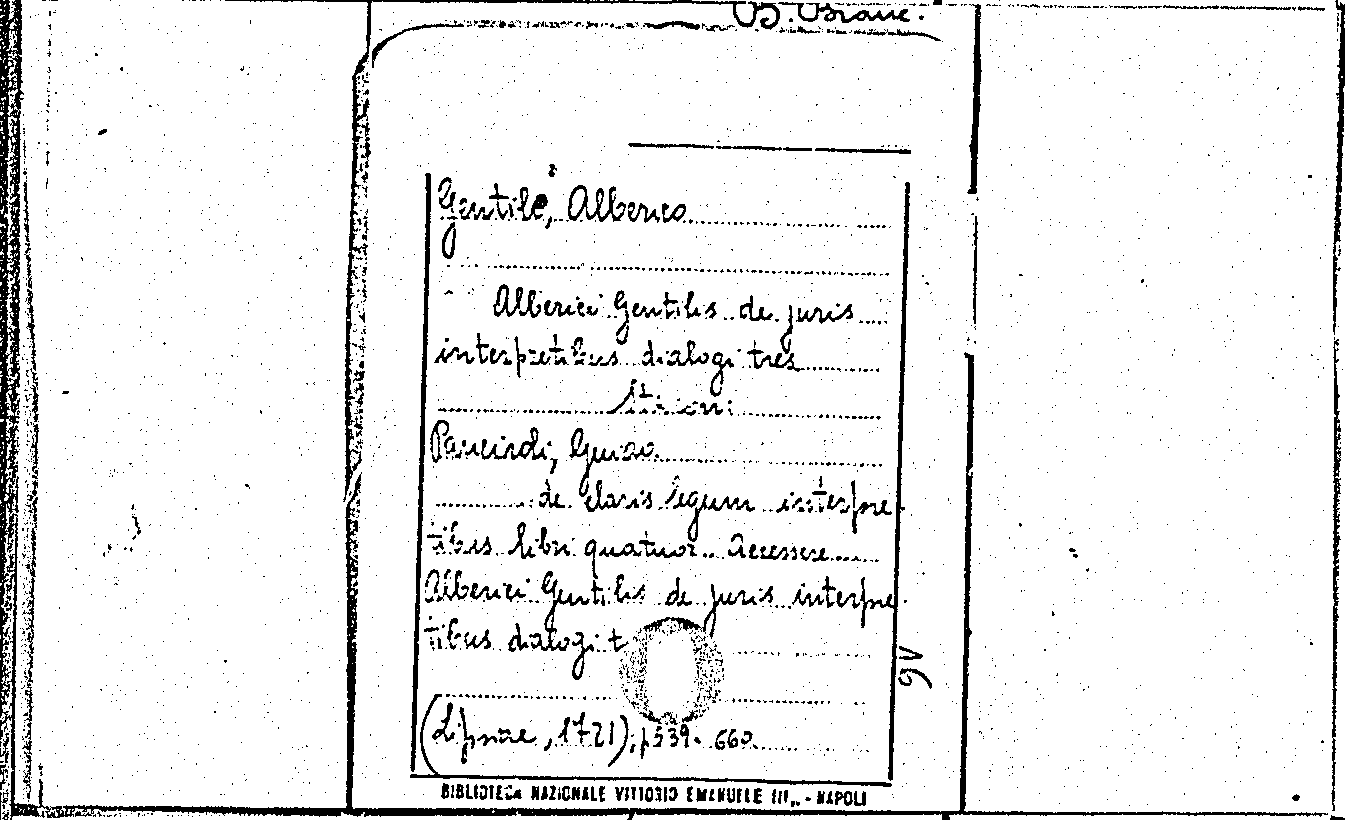 B. Branc.
Gentile, Alberico
Alberici Gentilis de juris
interpretibus dialogi tres
Panciroli, Guido
de claris legum interpre-
tibus libri quatuor. Accessere
Alberici Gentilis de juris interpre-
tibus dialogi t
(Lipsiae, 1721), p 539-660
BIBLIOTECA NAZIONALE VITTORIO EMANUELE III„ - NAPOLI